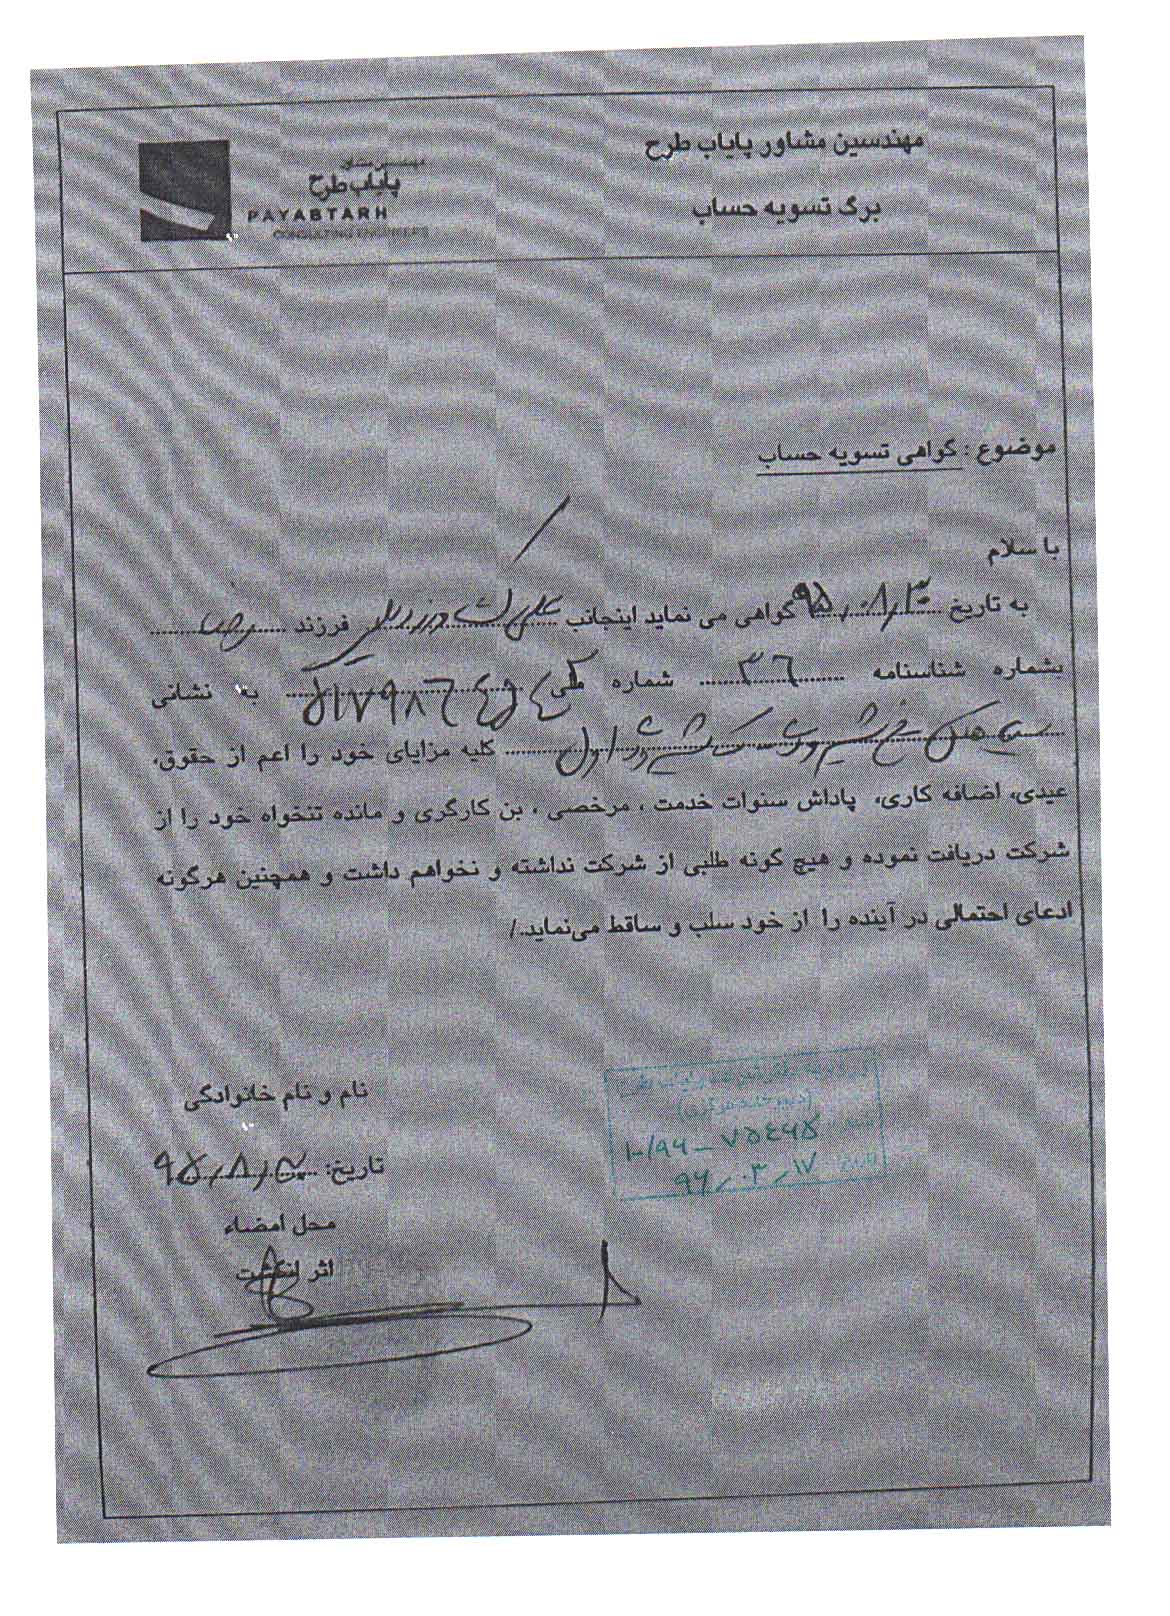 مهندسین مشاور پایاب طرح
برگ تسویه حساب
مهندسین مشاور
پایاب طرح
PAYABTARH
CONSULTING ENGINEERS
موضوع : گواهی تسویه حساب
با سلام
به تاریخ ۹۵/۰۸/۳۰ گواهی می نماید اینجانب علی فرزند رضا
بشماره شناسنامه ۳۶ شماره ملی به نشانی
کلیه مزایای خود را اعم از حقوق،
عیدی، اضافه کاری، پاداش سنوات خدمت ، مرخصی ، بن کارگری و مانده تنخواه خود را از
شرکت دریافت نموده و هیچ گونه طلبی از شرکت نداشته و نخواهم داشت و همچنین هرگونه
ادعای احتمالی در آینده را از خود سلب و ساقط می‌نماید./
نام و نام خانوادگی
تاریخ: ۹۵/۸/۳۰
محل امضاء
اثر انگشت
(دبیرخانه مرکزی)
تاریخ: ۹۶/۰۳/۱۷